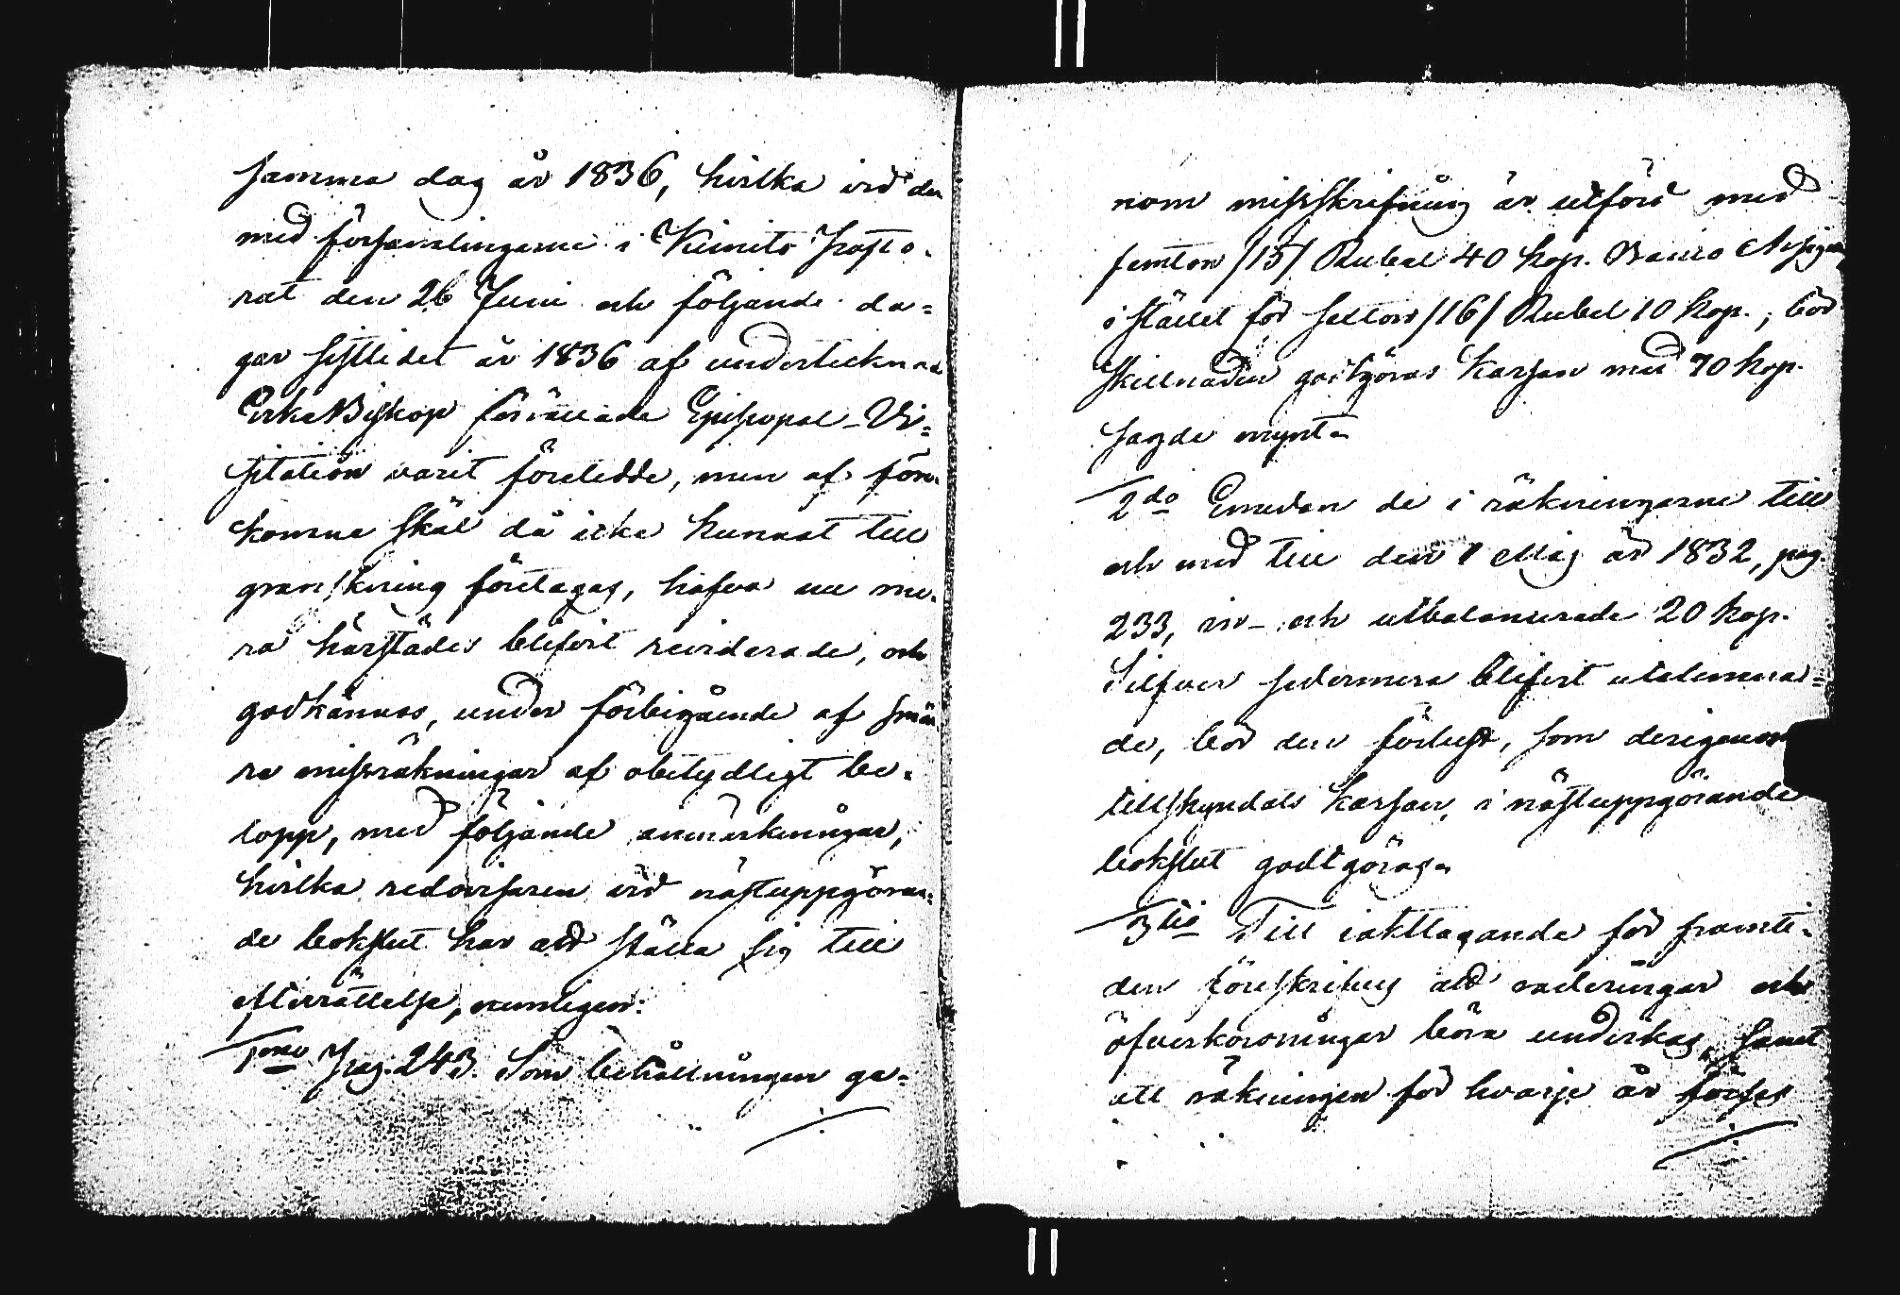 samma dag år 1836, hvilka vid den
med församlingarne i Kimito Pasto-
rat den 26 Juni och följande da-
gar sistledet år 1836 af undertecknad
ErkeBiskop förrättade Episcopal-Vi-
sitation varit föreledde, men af före-
komne skäl då icke kunnat till
granskning företagas, hafva nu me-
ra härstädes blifvit reviderade, och
godkännas, under förbigående af smär-
re missräkningar af obetydligt be-
lopp, med följande anmärkningar,
hvilka redovisaren vid nästuppgöran-
de bokslut har att ställa sig till
efterrättelse, nemligen:
1mo Pag. 243. Som behållningen ge-
nom misskrifning är utförd med
femton /15/ Rubel 40 kop. Banco Assign.
i stället för sexton /16/ Rubel 10 kop., bör
skillnaden godtgöras Kassan med 70 kop.
sagde mynt.
2do Emedan de i räkningarne till
och med till den 1 Maj år 1832, pag.
233, in- och utbalancerade 20 kop.
Silfver sedermera blifvit utelemna-
de, bör den förlust, som derigenom
tillskyndats kassan, i nästuppgörande
bokslut godtgöras.
3tio Till iakttagande för framti-
den föreskrifves att raderingar och
öfverkorsningar böra undvikas, samt
att räkningen för hvarje år förses